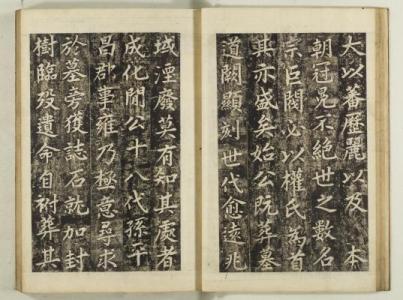 大以蕃歷麗以及本
朝冠冕不絕世之數名
宗巨閥必以權氏爲首
其亦盛矣始公旣葬墓
道闕顯刻世代愈遠兆
域湮廢莫有知其處者
成化間公十八代孫平
昌郡事雍乃極意尋求
於墓旁獲誌石就加封
樹臨歿遺命自祔葬其